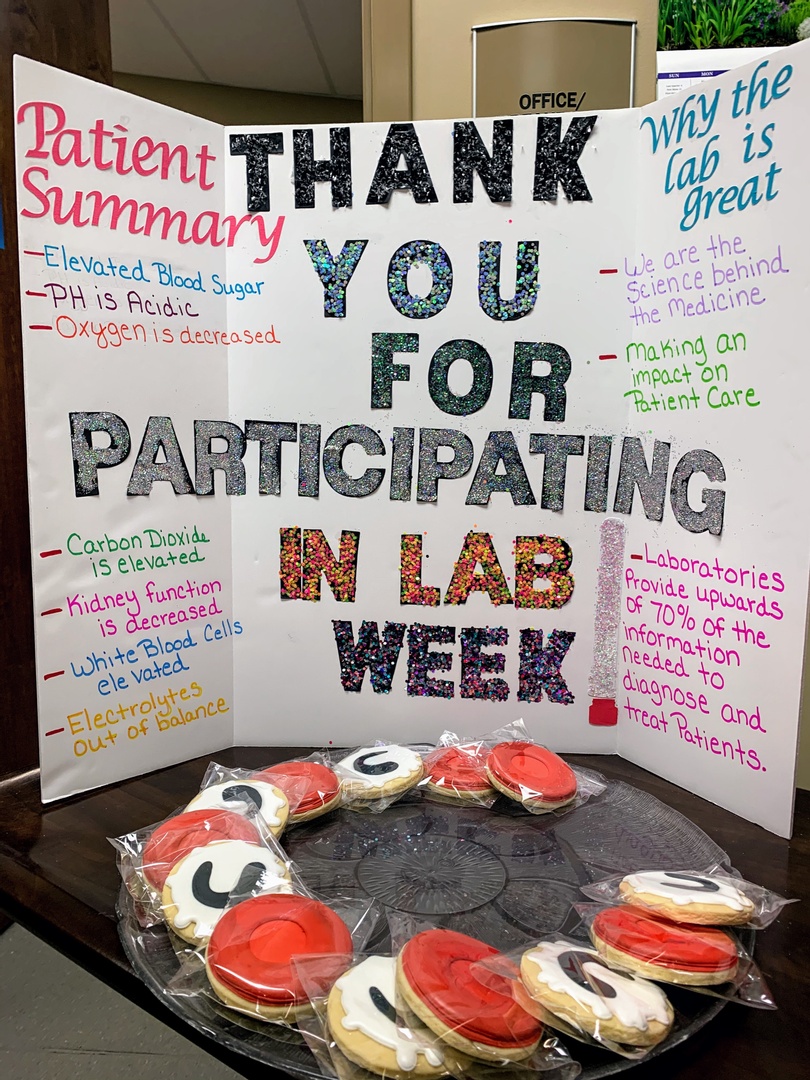 OFFICE/
SUN MON
Patient
Summary
— Elevated Blood Sugar
— PH is Acidic
— Oxygen is decreased
— Carbon Dioxide
is elevated
— Kidney function
is decreased
— White Blood Cells
elevated
— Electrolytes
out of balance
THANK
YOU
FOR
PARTICIPATING
IN LAB
WEEK
Why the
lab is
great
— We are the
Science behind
the Medicine
— Making an
impact on
Patient Care
— Laboratories
Provide upwards
of 70% of the
information
needed to
diagnose and
treat Patients.